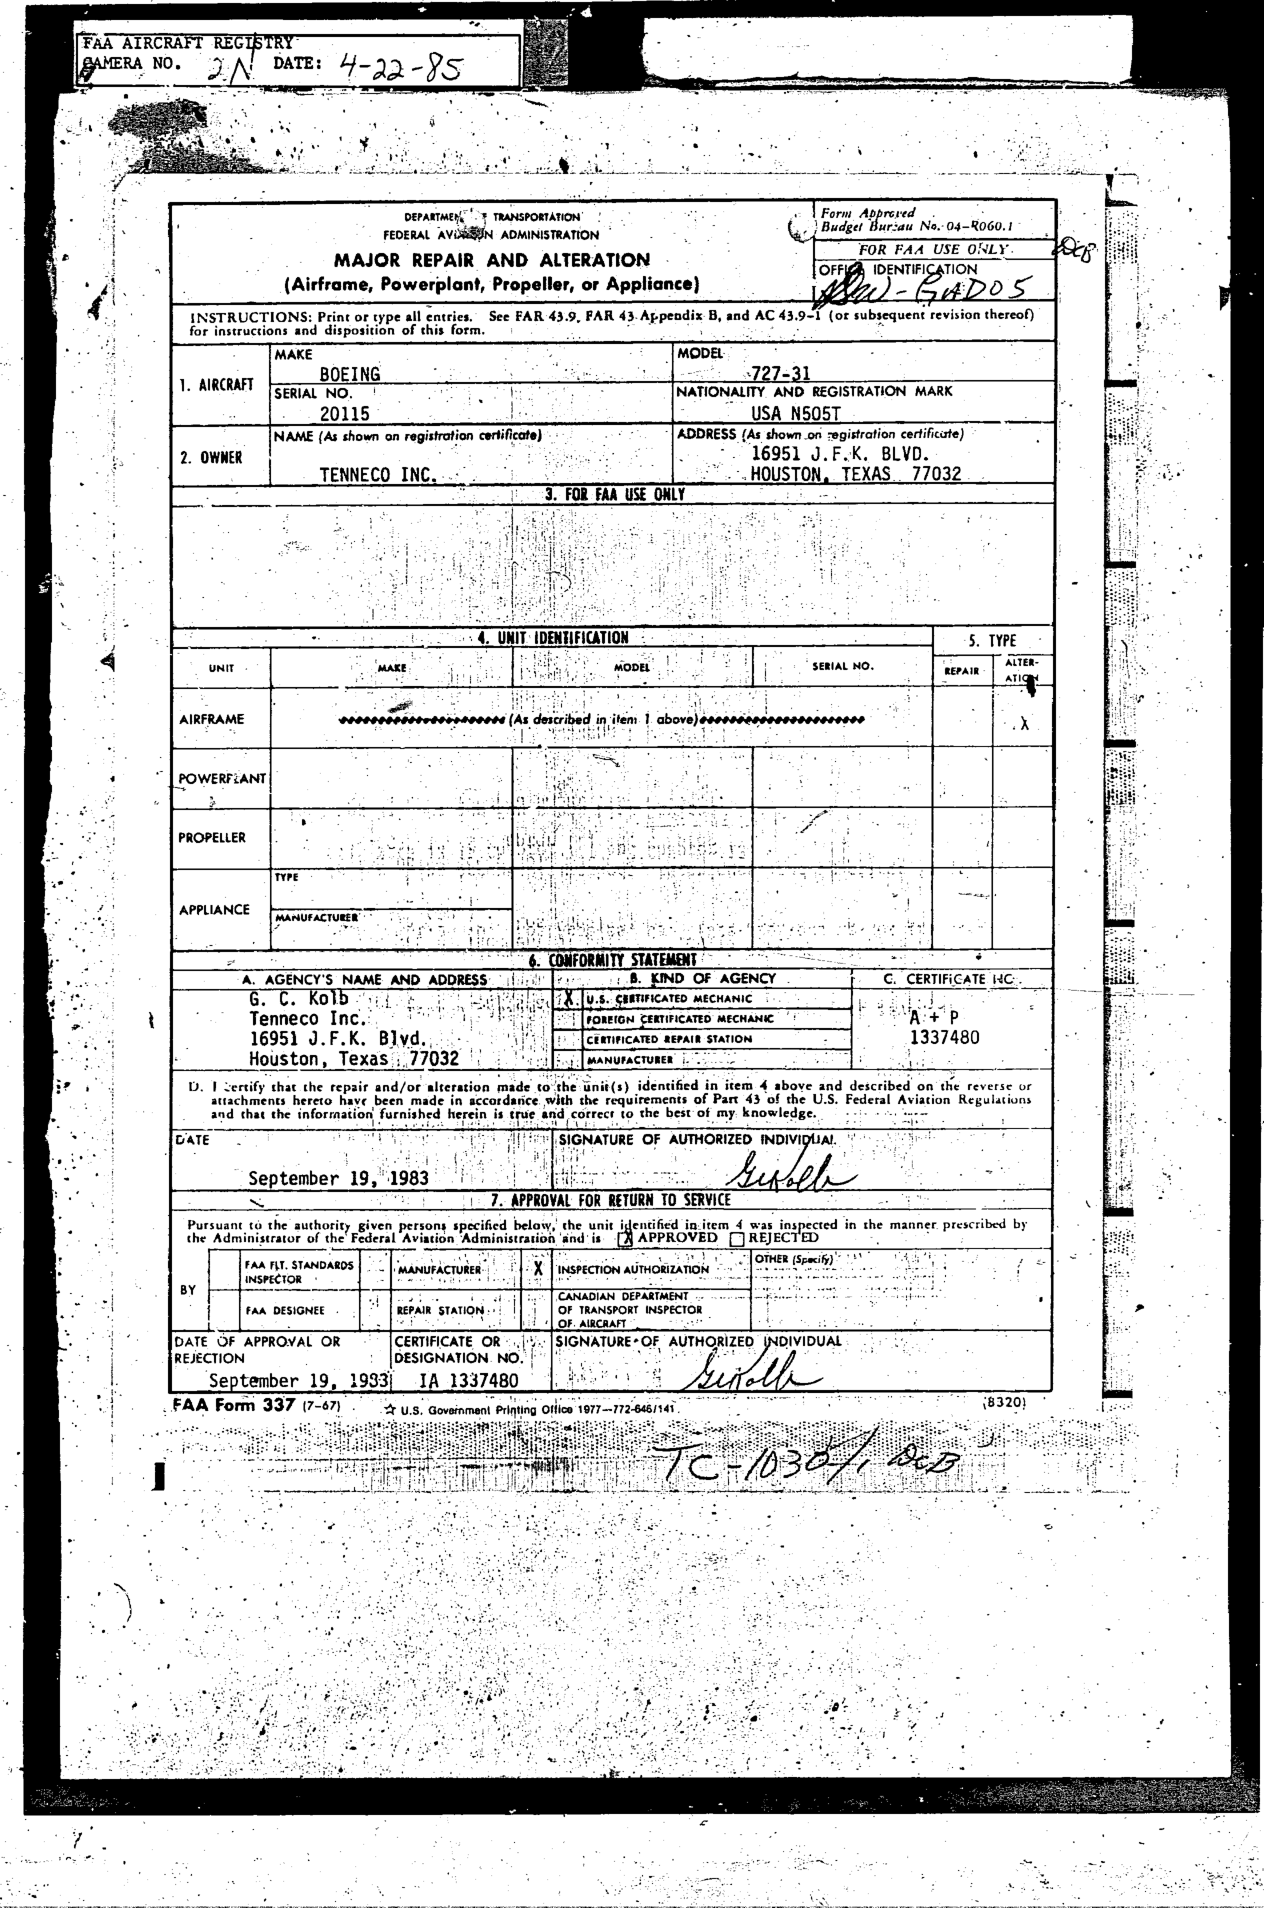 FAA AIRCRAFT REGISTRY
CAMERA NO. 2N DATE: 4-22-85
DEPARTMENT OF TRANSPORTATION
FEDERAL AVIATION ADMINISTRATION
MAJOR REPAIR AND ALTERATION
(Airframe, Powerplant, Propeller, or Appliance)
Form Approved
Budget Bureau No. 04-R060.1
FOR FAA USE ONLY
DCB
OFFICE IDENTIFICATION
SW-GADO5
INSTRUCTIONS: Print or type all entries. See FAR 43.9, FAR 43 Appendix B, and AC 43.9-1 (or subsequent revision thereof)
for instructions and disposition of this form.
1. AIRCRAFT
MAKE
BOEING
MODEL
727-31
SERIAL NO.
20115
NATIONALITY AND REGISTRATION MARK
USA N505T
2. OWNER
NAME (As shown on registration certificate)
TENNECO INC.
ADDRESS (As shown on registration certificate)
16951 J.F.K. BLVD.
HOUSTON, TEXAS 77032
3. FOR FAA USE ONLY
4. UNIT IDENTIFICATION
5. TYPE
UNIT MAKE MODEL SERIAL NO. REPAIR ALTER-
ATION
AIRFRAME (As described in item 1 above) X
POWERPLANT
PROPELLER
APPLIANCE
TYPE
MANUFACTURER
6. CONFORMITY STATEMENT
A. AGENCY'S NAME AND ADDRESS B. KIND OF AGENCY C. CERTIFICATE NO.
G. C. Kolb
Tenneco Inc.
16951 J.F.K. Blvd.
Houston, Texas 77032
X U.S. CERTIFICATED MECHANIC
FOREIGN CERTIFICATED MECHANIC
CERTIFICATED REPAIR STATION
MANUFACTURER
A + P
1337480
D. I certify that the repair and/or alteration made to the unit(s) identified in item 4 above and described on the reverse or
attachments hereto have been made in accordance with the requirements of Part 43 of the U.S. Federal Aviation Regulations
and that the information furnished herein is true and correct to the best of my knowledge.
DATE
September 19, 1983
SIGNATURE OF AUTHORIZED INDIVIDUAL
GCKolb
7. APPROVAL FOR RETURN TO SERVICE
Pursuant to the authority given persons specified below, the unit identified in item 4 was inspected in the manner prescribed by
the Administrator of the Federal Aviation Administration and is X APPROVED REJECTED
BY
FAA FLT. STANDARDS
INSPECTOR
MANUFACTURER
X INSPECTION AUTHORIZATION
OTHER (Specify)
FAA DESIGNEE
REPAIR STATION
CANADIAN DEPARTMENT
OF TRANSPORT INSPECTOR
OF AIRCRAFT
DATE OF APPROVAL OR
REJECTION
September 19, 1983
CERTIFICATE OR
DESIGNATION NO.
IA 1337480
SIGNATURE OF AUTHORIZED INDIVIDUAL
GCKolb
FAA Form 337 (7-67)
☆ U.S. Government Printing Office 1977—772-646/141
(8320)
TC-1030/1 DCB